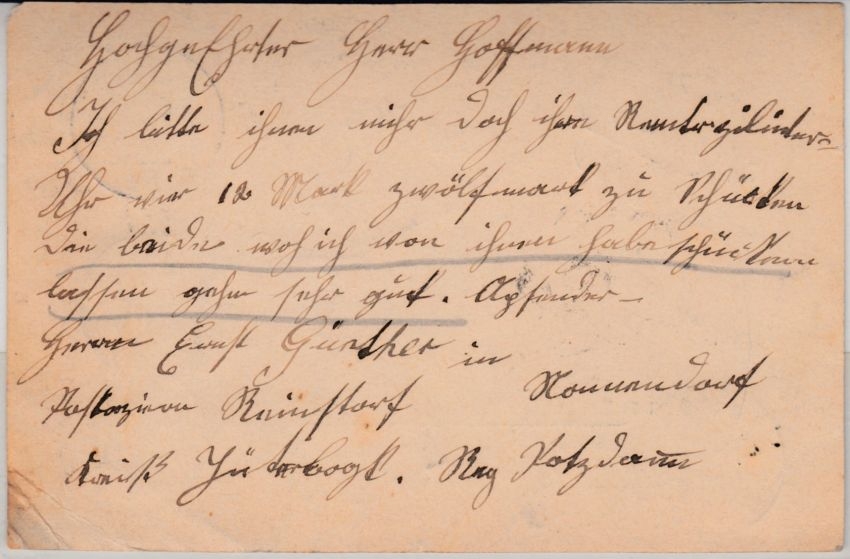 Hochgeehrter Herr Hoffmann
Ich bitte ihnen mihr doch ihre Remtrzilinter=
Uhr vür 12 Mark zwölfmark zu Schücken
die beide woh ich von ihnen habe schücken
lassen gehn sehr gut. Apsender –
Herrn Ernst Günther in
Nonnendorf
Reinstorf
Kreiß Jüterbogk. Reg Potzdamm